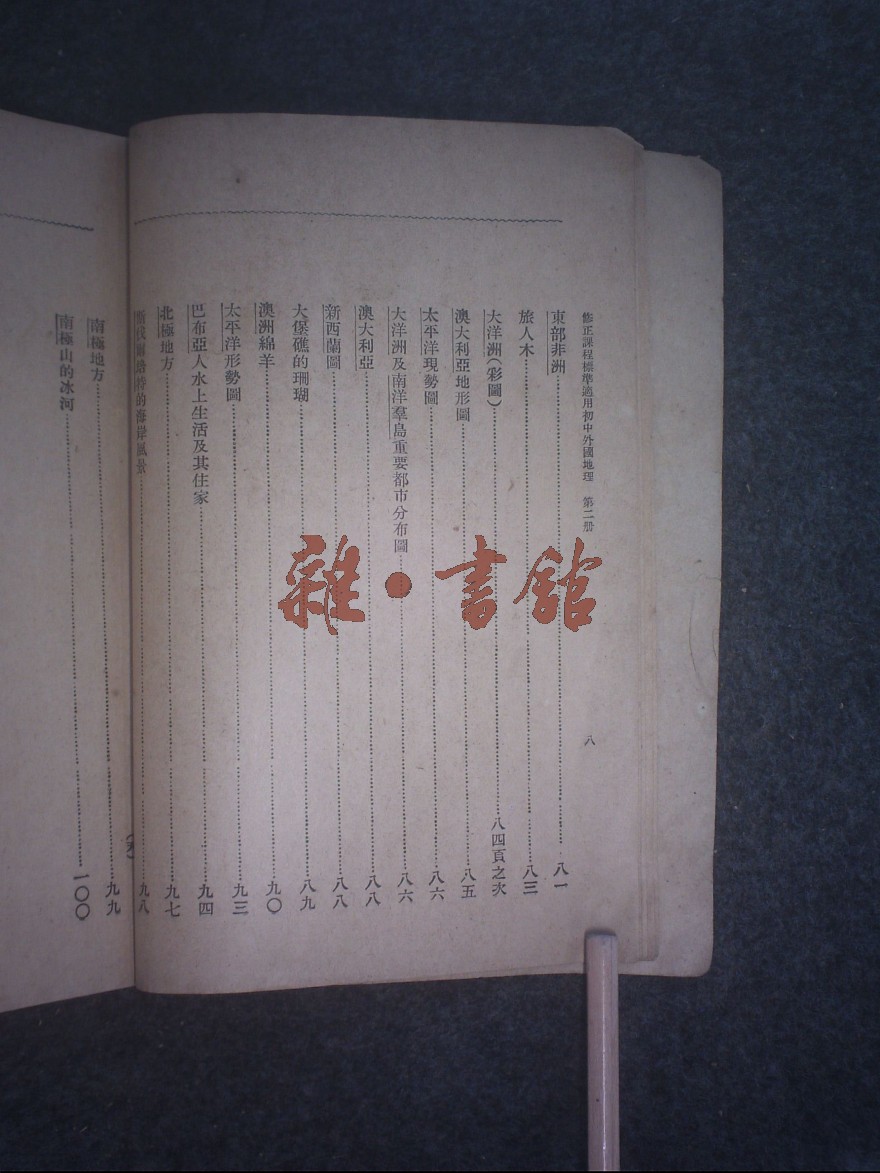 修正課程標準適用初中外國地理　第二册
八
東部非洲……八一
旅人木……八三
大洋洲(彩圖)……八四頁之次
澳大利亞地形圖……八五
太平洋現勢圖……八六
大洋洲及南洋羣島重要都市分布圖……八六
澳大利亞……八八
新西蘭圖……八八
大堡礁的珊瑚……八九
澳洲綿羊……九〇
太平洋形勢圖……九三
巴布亞人水上生活及其住家……九四
北極地方……九七
的海岸風景……九八
南極地方……九九
南極山的冰河……一〇〇
雜·書館